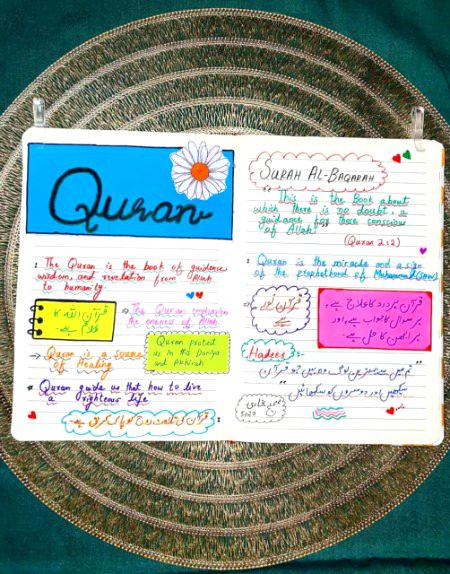 Quran
: The Quran is the book of guidence
wisdom, and revelation from Allah
to humanity.
قرآن اللہ کا
کلام ہے۔
→ The Quran emphasizes
the oneness of Allah
→ Quran is a source
of Healing
Quran protect
us in the Duniya
and Akhirah
* Quran guide us that how to live
a righteous life
قرآن کی تلاوت روح کو پاک کرتی ہے۔
SURAH AL-BAQARAH
" This is the Book about
which there is no doubt, a
guidance for those conscious
of Allah "
(Quran 2:2)
: Quran is the miracle and a sign
of the prophethood of Muhammad (SAW)
قرآن نور
ہے
قرآن ہر درد کا علاج ہے،
ہر سوال کا جواب ہے، اور
ہر الجھن کا حل ہے۔
Hadees :-
تم میں سے بہترین لوگ وہ ہیں جو قرآن
سیکھیں اور دوسروں کو سکھائیں"
صحیح بخاری
5027